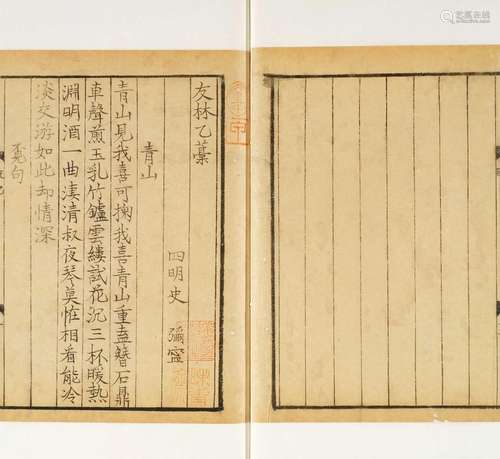 友林乙藁
四明史　彌寧
青山
青山見我喜可掬我喜青山重盍簪石鼎
車聲煎玉乳竹鑪雲縷試花沉三杯暖熱
淵明酒一曲淒清叔夜琴莫恠相看能冷
淡交游如此却情深
覓句